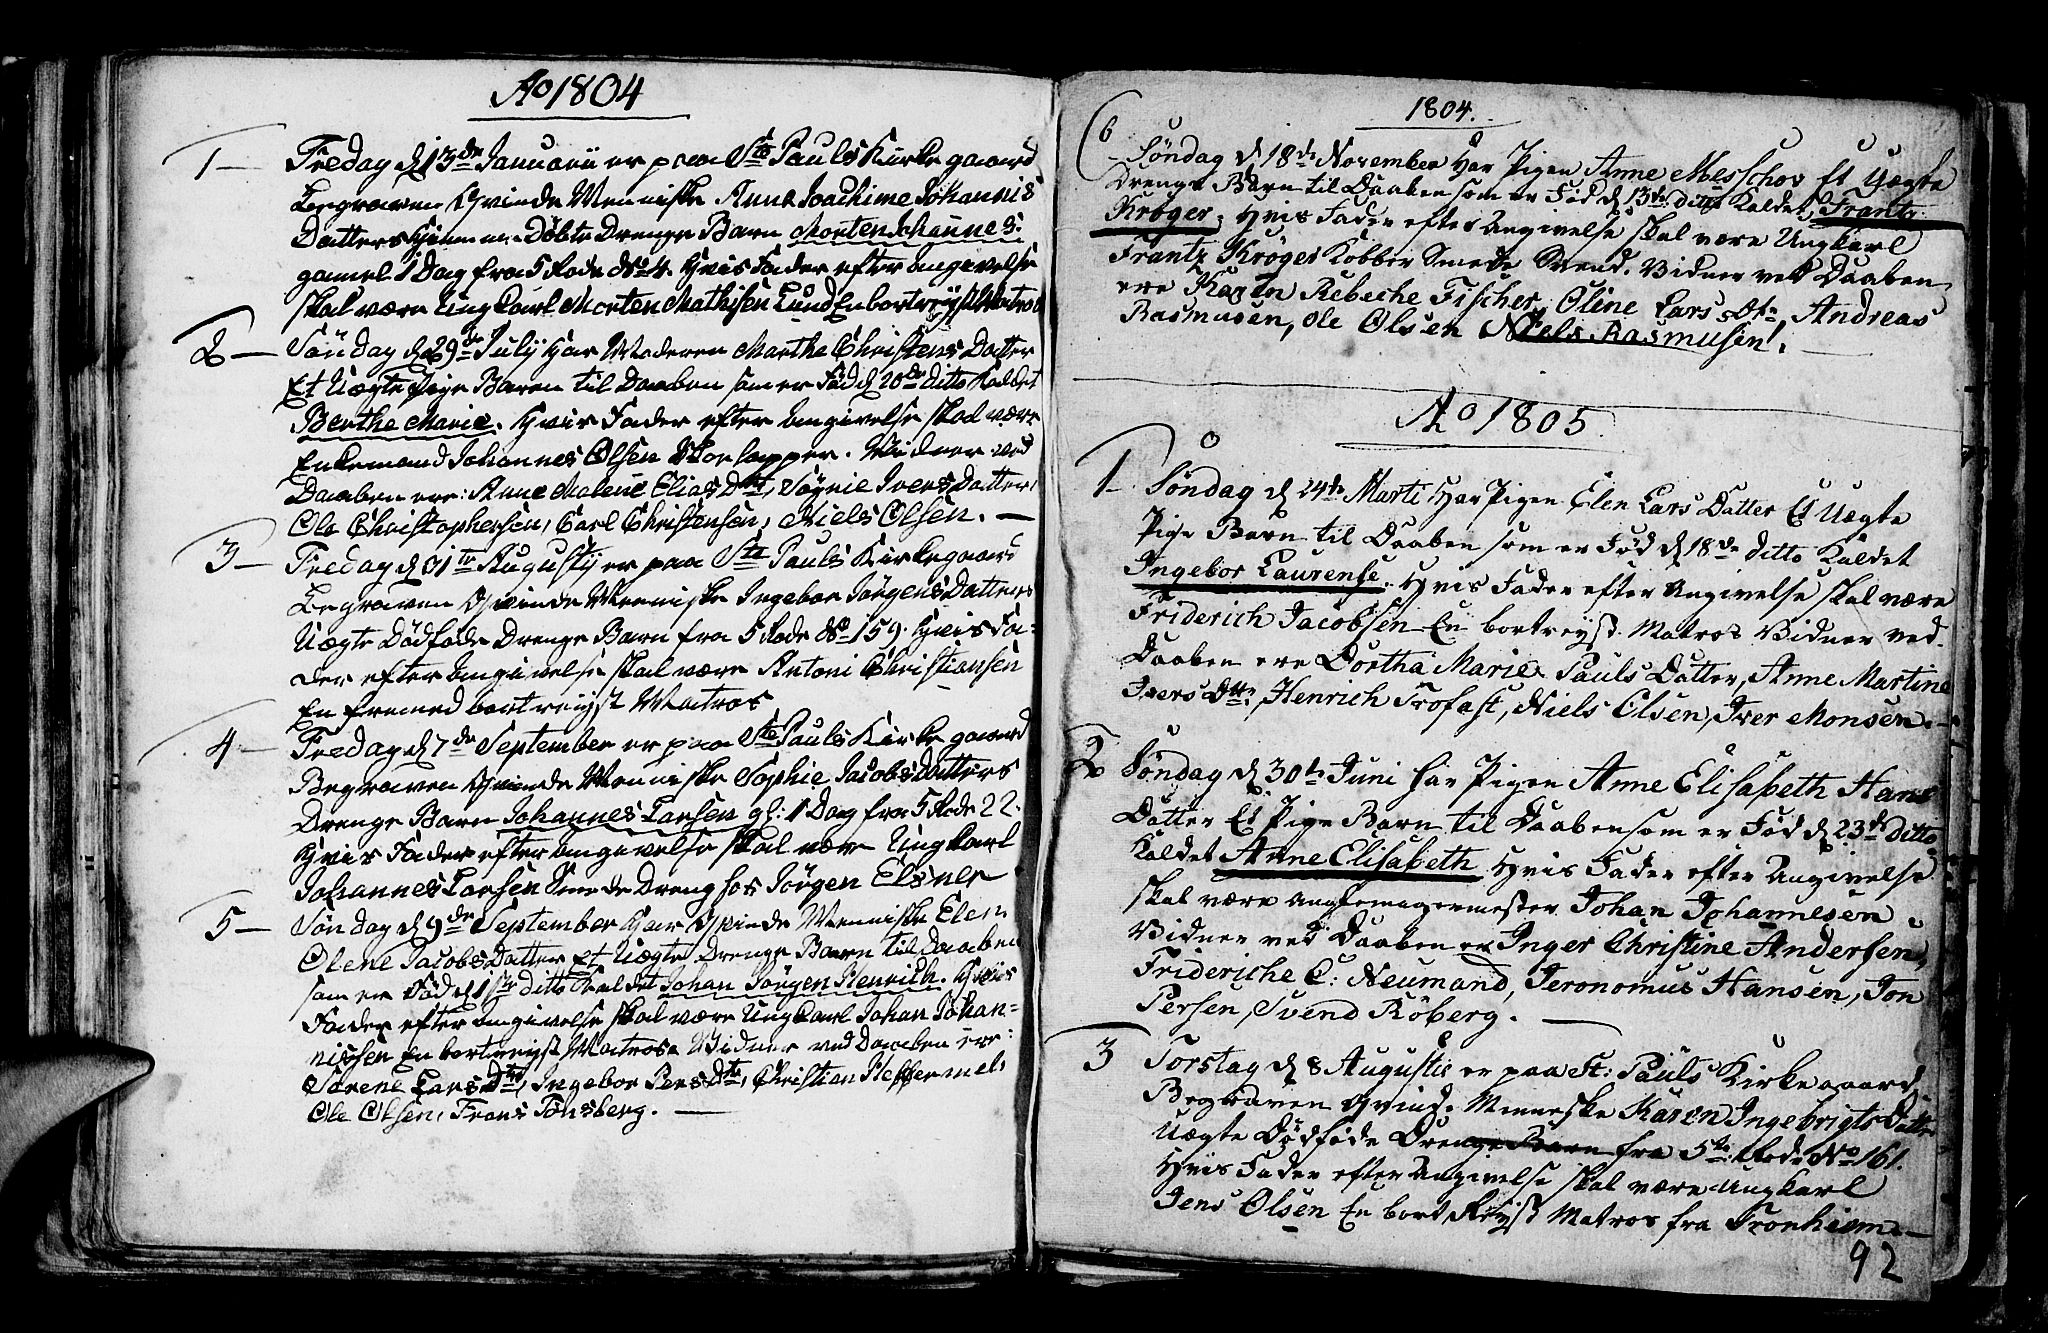 Ao 1804
1 — Fredag d 13de Januarii er paa Ste Pauls Kirke gaard
Begraven Qvinde Menniske Anne Joachime Johannis
Datters Hiemme Døbte Drenge Barn Morten Johannes.
gamel 1 Dag fra 5 Rode No 4. Hvis Fader efter angivelse
skal være Ung karl Morten Mathisen Lund En bortreyst Matros
2 — Søndag d 29de July har Moderen Marthe Christens Datter
Et Uægte Pige Barn til Daaben som er Fød d 20de ditto Kaldet
Berthe Marie. Hvis Fader efter angivelse skal være
Enkemand Johannes Olsen Skoelapper. Vidner ved
Daaben ere: Anne Malene Elias Dtr, Søgnie Ivers Datter,
Ole Christophersen, Carl Christensen, Niels Olsen. —
3 — Fredag d 31te Augustij er paa Ste Pauls Kirkegaard
Begraven Qvinde Menniske Ingebor Jørgens Datters
Uægte Dødføde Drenge Barn fra 5 Rode No 159. Hvis Fa-
der efter angivelse skal være Antoni Christiansen
En fremed bortreyst Matros
4 — Fredag d 7de September er paa Ste Pauls Kirke gaard
Begraven Qvinde Menniske Sophie Jacobs Datters
Drenge Barn Johannes Larsen gl: 1 Dag fra 5 Rode 22.
Hvis Fader efter angivelse skal være Ungkarl
Johannes Larsen Smede Dreng hos Jörgen Elsner
5 — Søndag d 9de September har Qvinde Menniske Elen
Olene Jacobs Datter Et Uægte Drenge Barn til Daaben
som er Fød d 1ste ditto Kaldet Johan Jörgen Henrich. Hvis
Fader efter angivelse skal være Ungkarl Johan Johan-
nissen En bortreyst Matros. Vidner ved Daaben ere:
Sørene Lars Dtr, Ingebor Pers Dtr, Christian Heffermel,
Ole Olsen, Frans Tönsberg. —
1804.
6 — Søndag d 18de November Har Pigen Anne Messchov Et Uægte
Drenge Barn til Daaben som er Fød d 13de ditto Kaldet Frantz
Krøger. Hvis Fader efter Angivelse skal være Ungkarl
Frantz Krøger Kobber Smede Svend. Vidner ved Daaben
ere Karen Rebeche Fischer, Oline Lars Dtr, Andreas
Rasmusen, Ole Olsen Niels Rasmusen. —
Ao 1805
1 — Søndag d 24de Marti Har Pigen Elen Lars Datter Et Uægte
Pige Barn til Daaben som er Fød d 18de ditto Kaldet
Ingebor Laurense. Hvis Fader efter Angivelse skal være
Friderich Jacobsen En bortreyst Matros Vidner ved
Daaben ere Dortha Marie Pauls Datter, Anne Martine
Ivers Dtr. Henrich Trofast, Niels Olsen, Iver Monsen. —
2 Søndag d 30te Juni har Pigen Anne Elisabeth Hans
Datter Et Pige Barn til Daaben som er Fød d 23de ditto
Kaldet Anne Elisabeth Hvis Fader efter Angivelse
skal være Johan Johannesen
Vidner ved Daaben er Inger Christine Andersen,
Frideriche C: Neumand, Jeronomus Hansen, Jon
Persen, Svend Röberg. —
3 Torstag d 8 Augusti er paa St: Pauls Kirke gaard
Begraven Qvinde Menniske Karen Ingebrigts Datter
Uægte Dødføde Drenge Barn fra 5te Rode No 161.
Hvis Fader efter Angivelse skal være Ungkarl
Jens Olsen En bort Reyst Matros fra Tronhiem. —
92